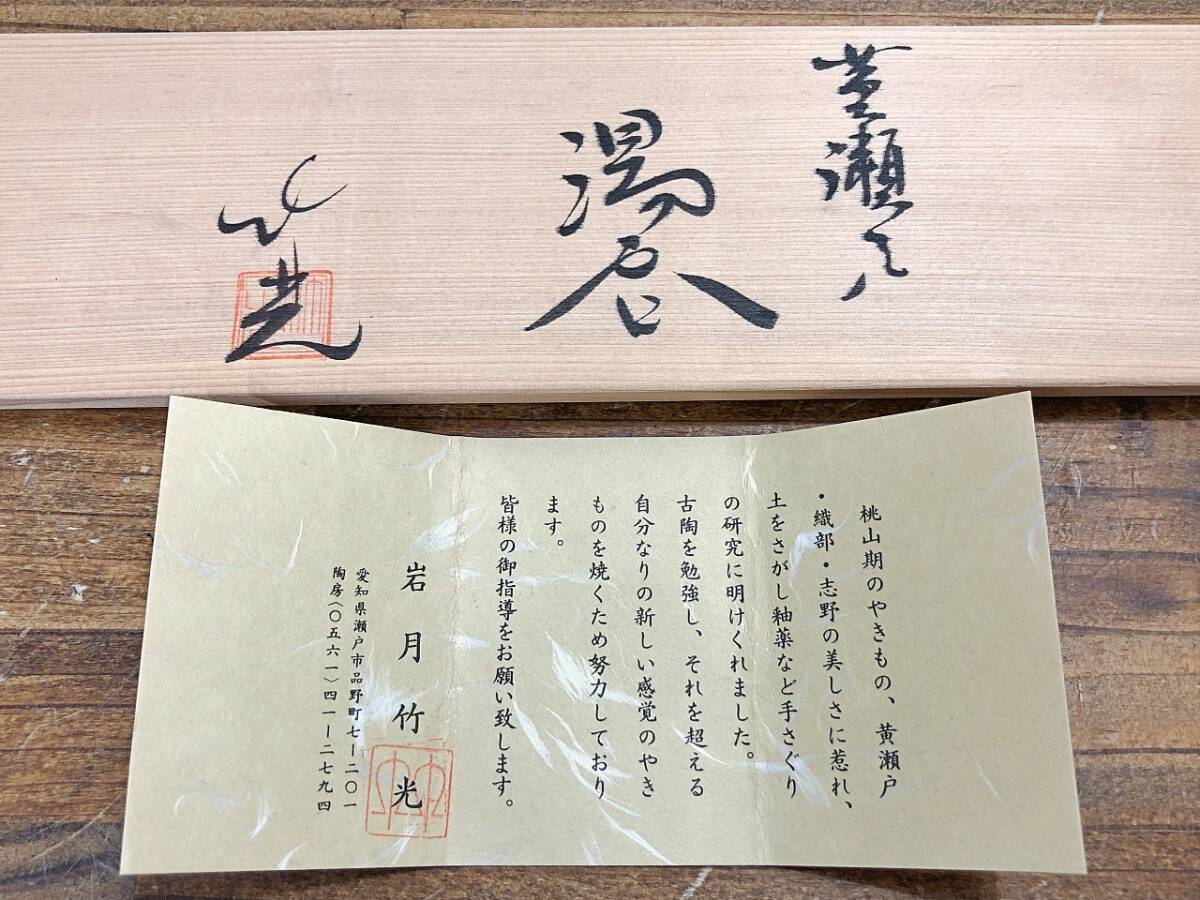 黄瀬戸
湯呑
竹光
桃山期のやきもの、黄瀬戸
・織部・志野の美しさに惹れ、
土をさがし釉薬など手さぐり
の研究に明けくれました。
古陶を勉強し、それを超える
自分なりの新しい感覚のやき
ものを焼くため努力しており
ます。
皆様の御指導をお願い致します。
岩月竹光
愛知県瀬戸市品野町七ー二〇一
陶房(〇五六一)四一ー二七九四